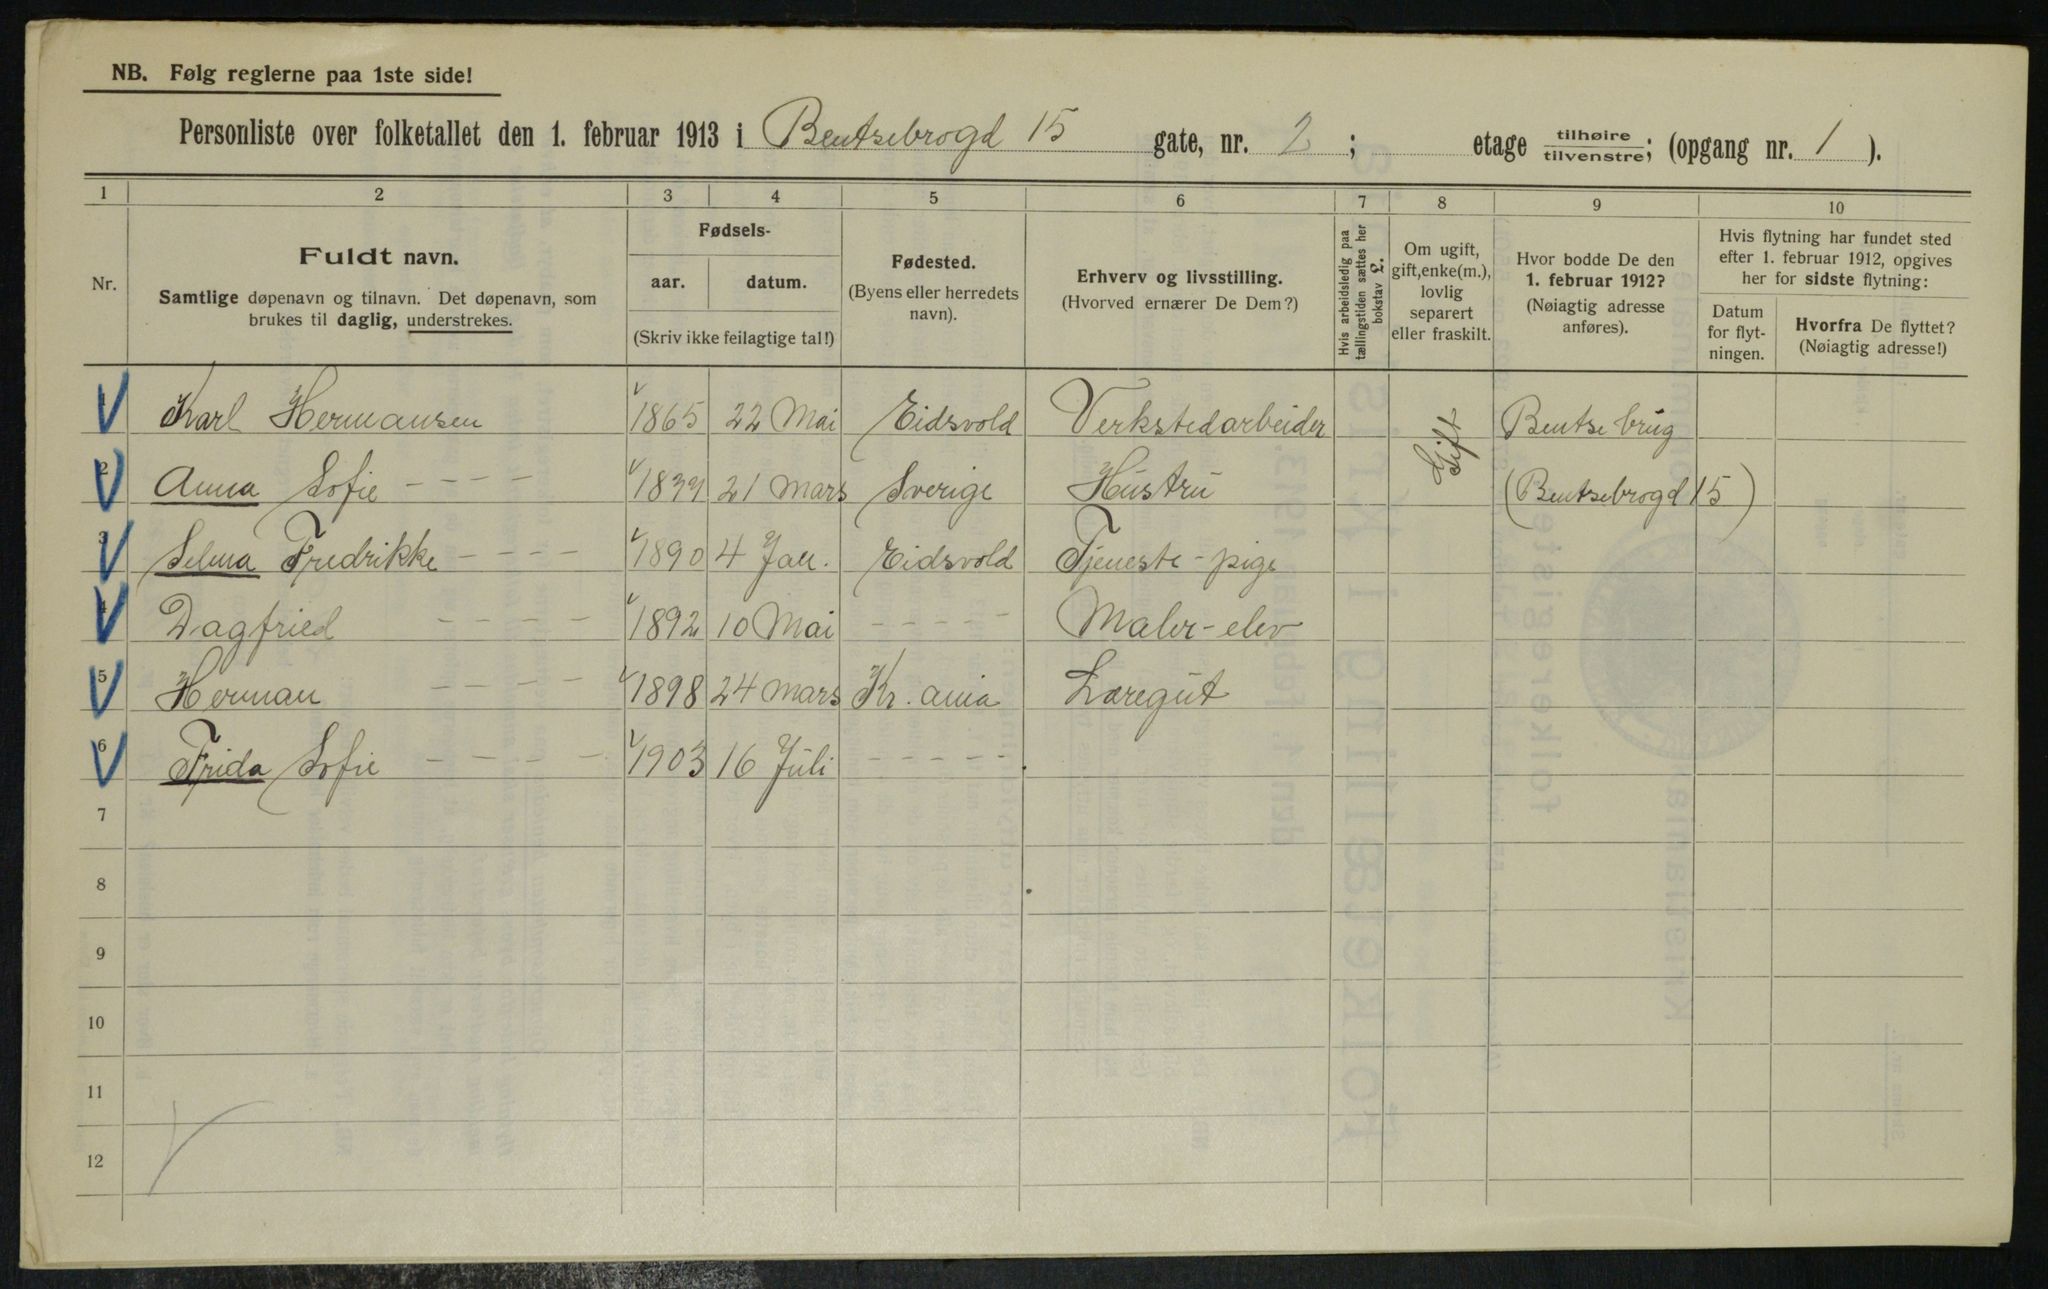 NB. Følg reglerne paa 1ste side!
Personliste over folketallet den 1. februar 1913 i Bentsebrogd 15 gate, nr. 2; etage tilhøire/tilvenstre; (opgang nr. 1).
1 2 3 4 5 6 7 8 9 10
Nr.
Fuldt navn.
Samtlige døpenavn og tilnavn. Det døpenavn, som
brukes til daglig, understrekes.
Fødsels-
aar. datum.
(Skriv ikke feilagtige tal!)
Fødested.
(Byens eller herredets
navn).
Erhverv og livsstilling.
(Hvorved ernærer De Dem?)
Hvis arbeidsledig paa
tællingstiden sættes her
bokstav L.
Om ugift,
gift, enke(m.),
lovlig
separert
eller fraskilt.
Hvor bodde De den
1. februar 1912?
(Nøiagtig adresse
anføres).
Hvis flytning har fundet sted
efter 1. februar 1912, opgives
her for sidste flytning:
Datum
for flyt-
ningen.
Hvorfra De flyttet?
(Nøiagtig adresse!)
1 Karl Hermansen 1865 22 Mai Eidsvold Verkstedarbeider Gift Bentse brug
2 Anna Sofie - - - - 21 Mars Sverige Hustru (Bentsebrogd 15)
3 Selma Fredrikke - - - - 1890 4 Jan. Eidsvold Tjeneste-pige
4 Dagfried - - - - 1892 10 Mai - - - - - Maler-elev
5 Herman - - - - 1898 24 Mars Kr. ania Læregut
6 Frida Sofie - - - - 1903 16 Juli - - - - -
7
8
9
10
11
12